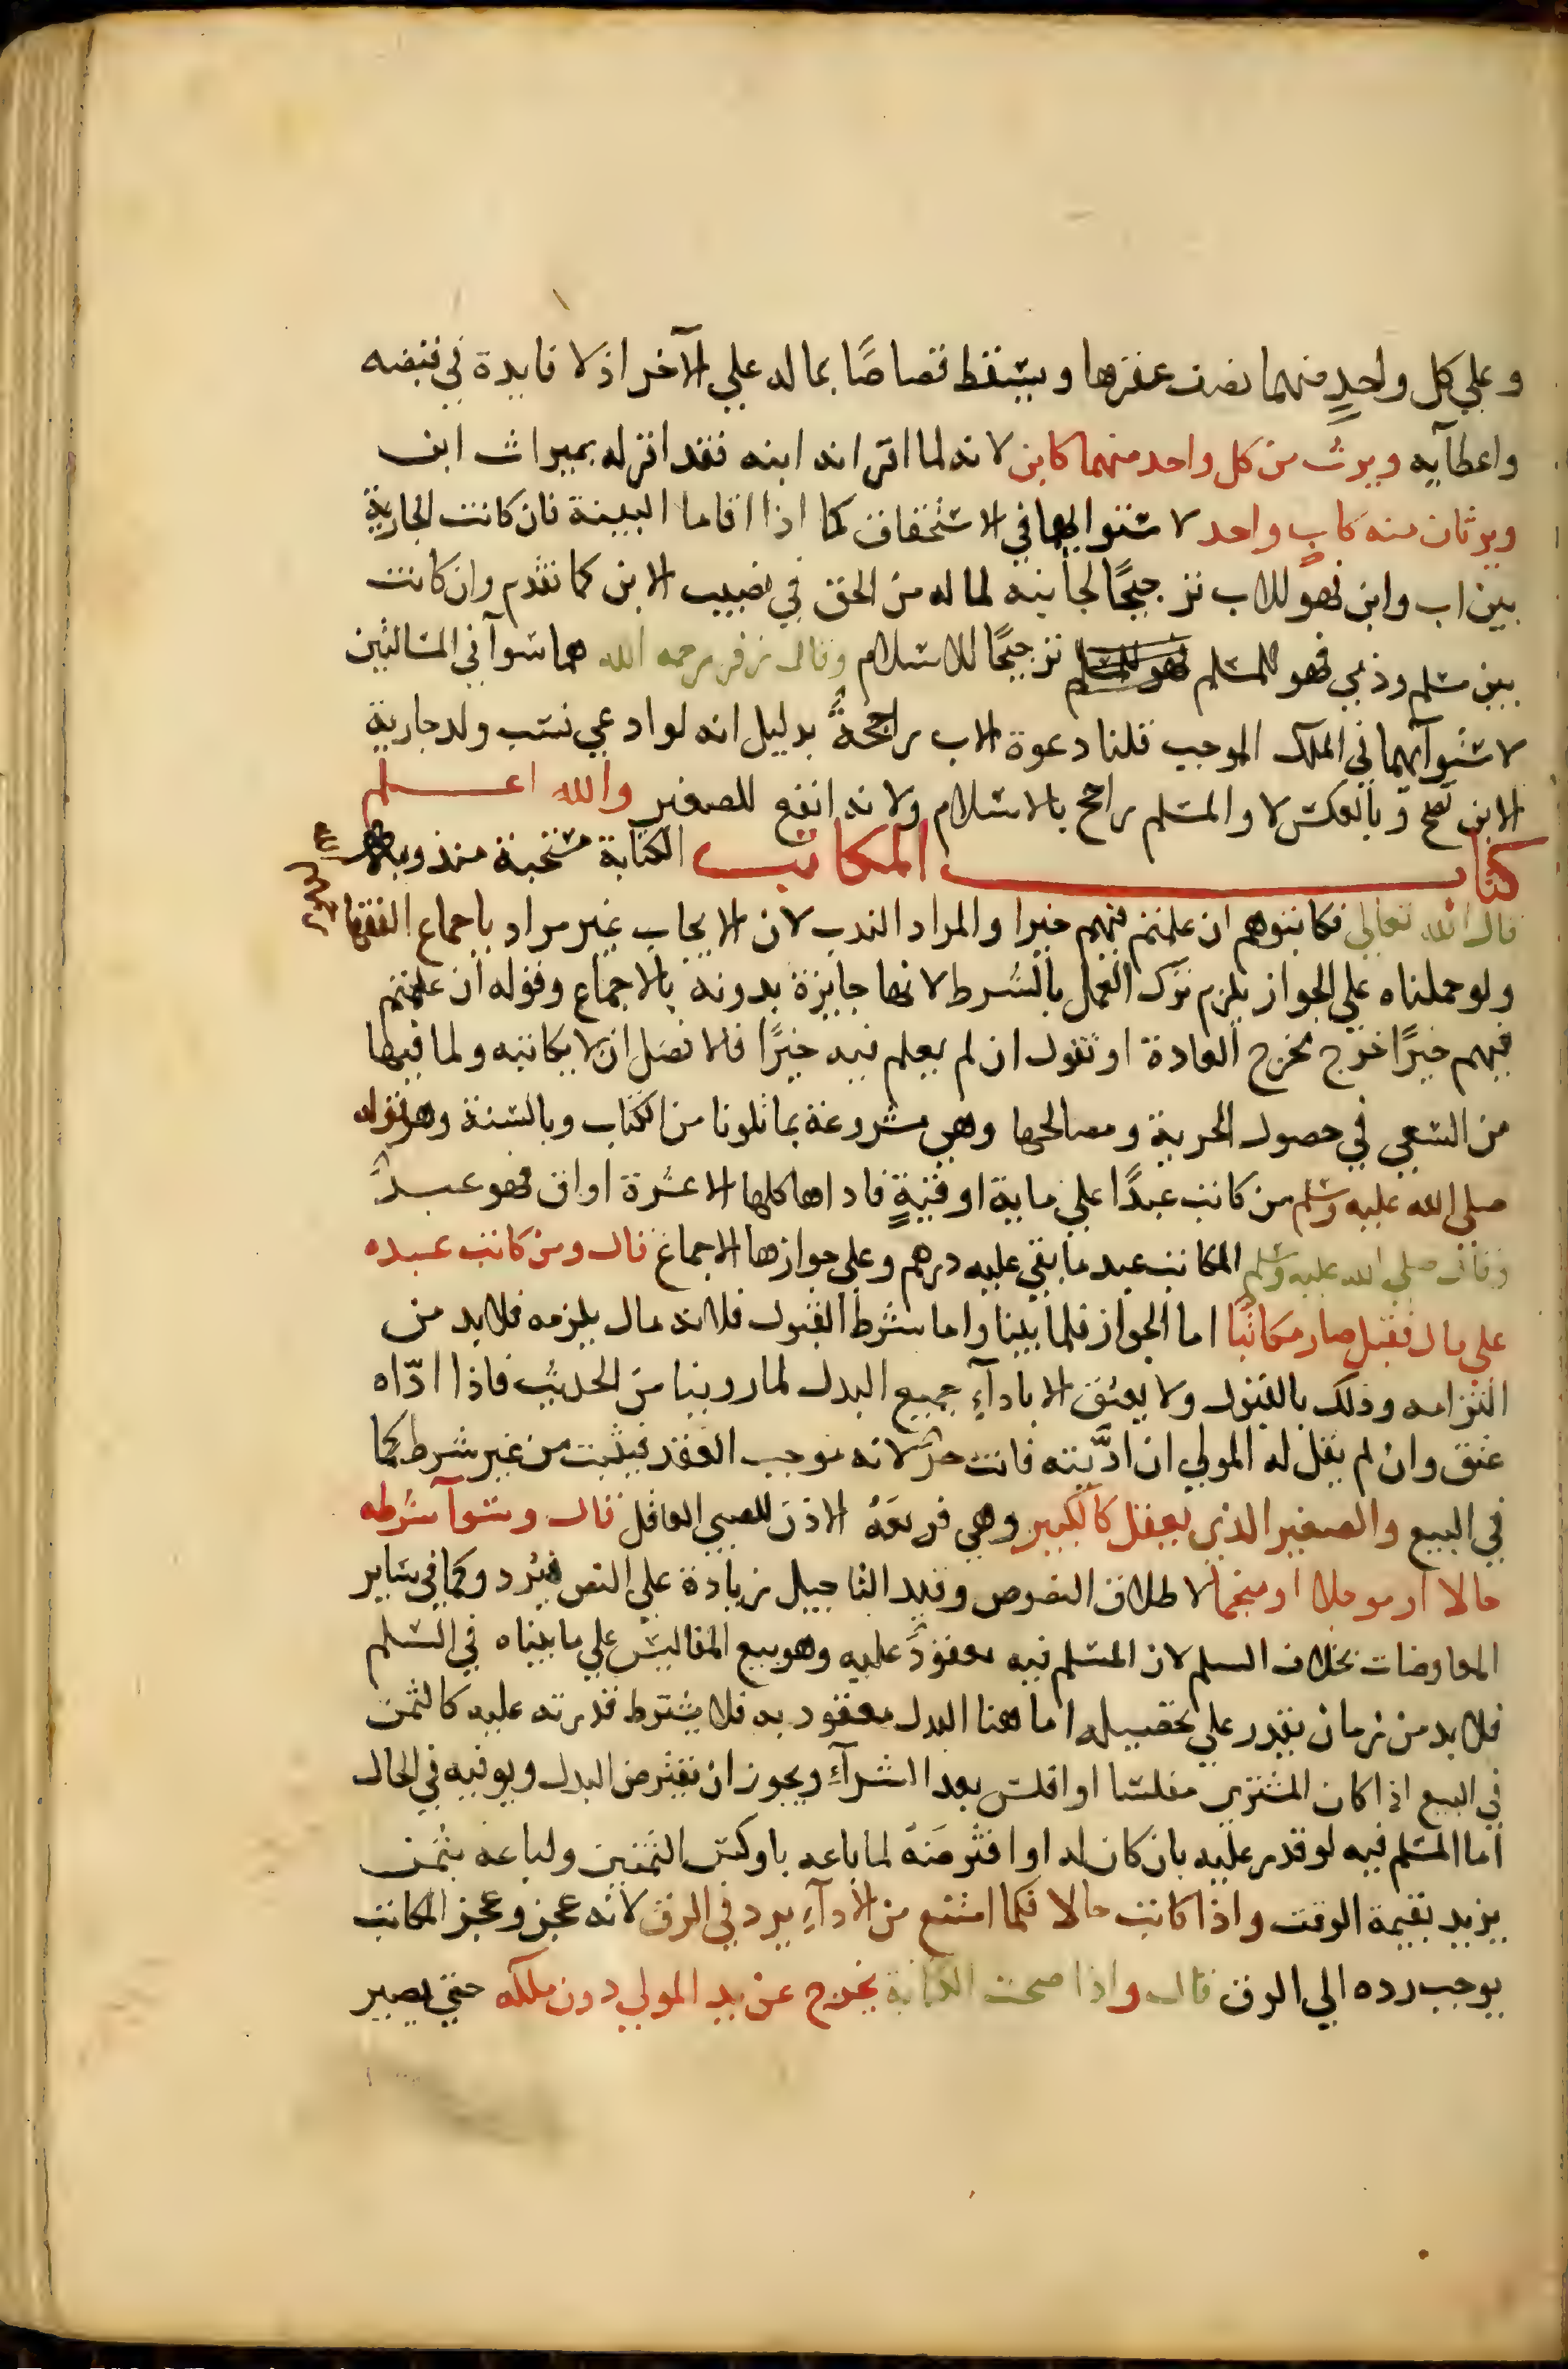 وعلي كل واحدٍ منهما نصف عقرها ويسقط قصاصًا بماله علي الآخر اذ لا فايدة في قبضه
واعطآيه ويرث من كل واحد منهما كابن لانه لما اقر انه ابنه فقد اقر له بميراث ابن
ويرثان منه كابٍ واحد لاستوايهما في الاستحقاق كما اذا اقاما البينة فان كانت الجارية
بين اب وابن فهو للاب ترجيحًا لجانبه لما له من الحق في نصيب الابن كما تقدم وان كانت
بين مسلم وذمي فهو للمسلم فهو للمسلم ترجيحًا للاسلام وقال زفر رحمه الله هما سوآ في المسالتين
لاستوآيهما في الملك الموجب قلنا دعوة الاب راجحةٌ بدليل انه لو ادعي نسب ولد جارية
الابن تصح وبالعكس لا والمسلم راجح بالاسلام ولانه انفع للصغير والله اعلم
كتاب المكاتب الكتابة مستحبة مندوب
قال الله تعالي فكاتبوهم ان علمتم فيهم خيرا والمراد الندب لان الايجاب غير مراد باجماع الفقها
ولو حملناه علي الجواز يلزم ترك العمل بالشرط لانها جايزة بدونه بالاجماع وقوله ان علمتم
فيهم خيرًا خرج مخرج العادة او نقول ان لم يعلم فيه خيرًا فالافضل ان لا يكاتبه ولما فيها
من السعي في حصول الحرية ومصالحها وهي مشروعة بما تلونا من الكتاب وبالسنة وهو قوله
صلي الله عليه وسلم من كاتب عبدًا علي ماية اوقيةٍ فاداها كلها الا عشرة اواق فهو عبدٌ
وقال صلي الله عليه وسلم المكاتب عبد ما بقي عليه درهم وعلي جوازها الاجماع قال ومن كاتب عبده
علي مال فقبل صار مكاتبًا اما الجواز فلما بينا واما شرط القبول فلانه مال يلزمه فلا بد من
التزامه وذلك بالقبول ولا يعتق الا بادآءِ جميع البدل لما روينا من الحديث فاذا ادّاه
عتق وان لم يقل له المولي ان ادّيته فانت حرٌّ لانه موجب العقد فيثبت من غير شرط كما
في البيع والصغير الذي يعقل كالكبير وهي فرع الاذن للصبي العاقل قال وسوآ شرطه
حالا او موجلا او منجما لاطلاق النصوص وقيد التاجيل زيادة علي النص فيرد وكما في ساير
المعاوضات بخلاف السلم لان المسلم فيه معقودٌ عليه وهو بيع المفاليس علي ما بيناه في السلم
فلا بد من زمان يقدر علي تحصيله اما هنا البدل معقود به فلا يشترط قدرته عليه كالثمن
في البيع اذا كان المشتري مفلسا او افلس بعد الشرآءِ ويجوز ان يقترض البدل ويوفيه في الحال
اما المسلم فيه لو قدر عليه بان كان له او اقترضه لما باعه باوكس الثمنين ولباعه بثمن
يزيد بقيمة الوقت واذا كاتب حالا فكما امتنع من الادآءِ يرد في الرق لانه عجز وعجز المكاتب
يوجب رده الي الرق قال واذا صحت الكتابة يخرج عن يد المولي دون ملكه حتي يصير